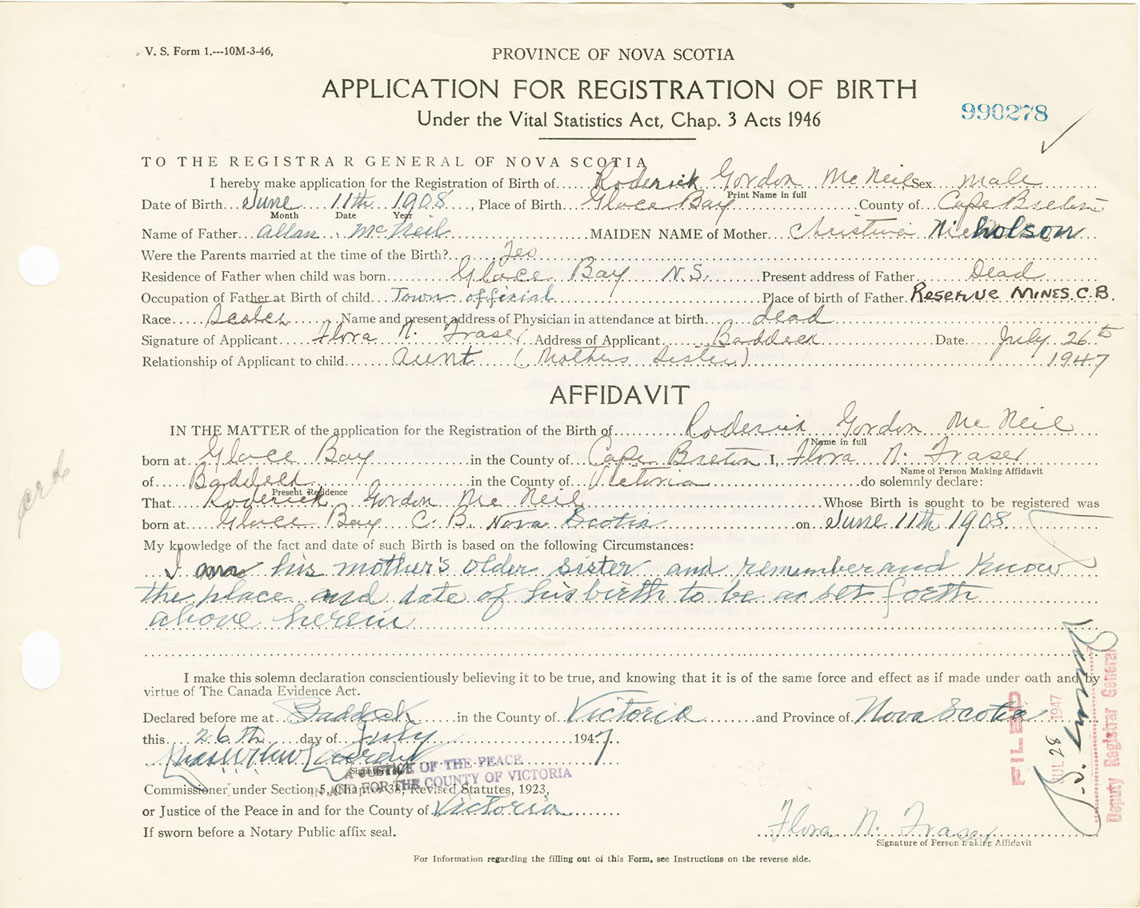 V. S. Form 1.---10M-3-46,
PROVINCE OF NOVA SCOTIA
APPLICATION FOR REGISTRATION OF BIRTH
Under the Vital Statistics Act, Chap. 3 Acts 1946
990278
TO THE REGISTRAR GENERAL OF NOVA SCOTIA
I hereby make application for the Registration of Birth of Roderick Gordon McNeil Sex male
Print Name in full
Date of Birth June 11th 1908, Place of Birth Glace Bay County of Cape Breton
Month Date Year
Name of Father allan McNeil MAIDEN NAME of Mother Christina Nicholson
Were the Parents married at the time of the Birth? Yes
Residence of Father when child was born Glace Bay N.S. Present address of Father Dead
Occupation of Father at Birth of child Town official Place of birth of Father RESERVE MINES. C.B.
Race Scotch Name and present address of Physician in attendance at birth dead
Signature of Applicant Flora N. Fraser Address of Applicant Baddeck Date July 26th
Relationship of Applicant to child aunt (Mothers Sister) 1947
AFFIDAVIT
IN THE MATTER of the application for the Registration of the Birth of Roderick Gordon McNeil
Name in full
born at Glace Bay in the County of Cape Breton I, Flora N. Fraser
Name of Person Making Affidavit
of Baddeck in the County of Victoria do solemnly declare:
Present Residence
That Roderick Gordon McNeil Whose Birth is sought to be registered was
born at Glace Bay C. B. Nova Scotia on June 11th 1908
My knowledge of the fact and date of such Birth is based on the following Circumstances:
I am his mother's older sister and remember and Know
the place and date of his birth to be as set forth
above herein
I make this solemn declaration conscientiously believing it to be true, and knowing that it is of the same force and effect as if made under oath and by
virtue of The Canada Evidence Act.
Declared before me at Baddeck in the County of Victoria and Province of Nova Scotia
this 26th day of July 1947
A JUSTICE OF THE PEACE
IN AND FOR THE COUNTY OF VICTORIA
Commissioner under Section 5, Chapter 38, Revised Statutes, 1923,
or Justice of the Peace in and for the County of Victoria
If sworn before a Notary Public affix seal.
Flora N. Fraser
Signature of Person making Affidavit
For Information regarding the filling out of this Form, see Instructions on the reverse side.
FILED
JUL 28 1947
Deputy Registrar General